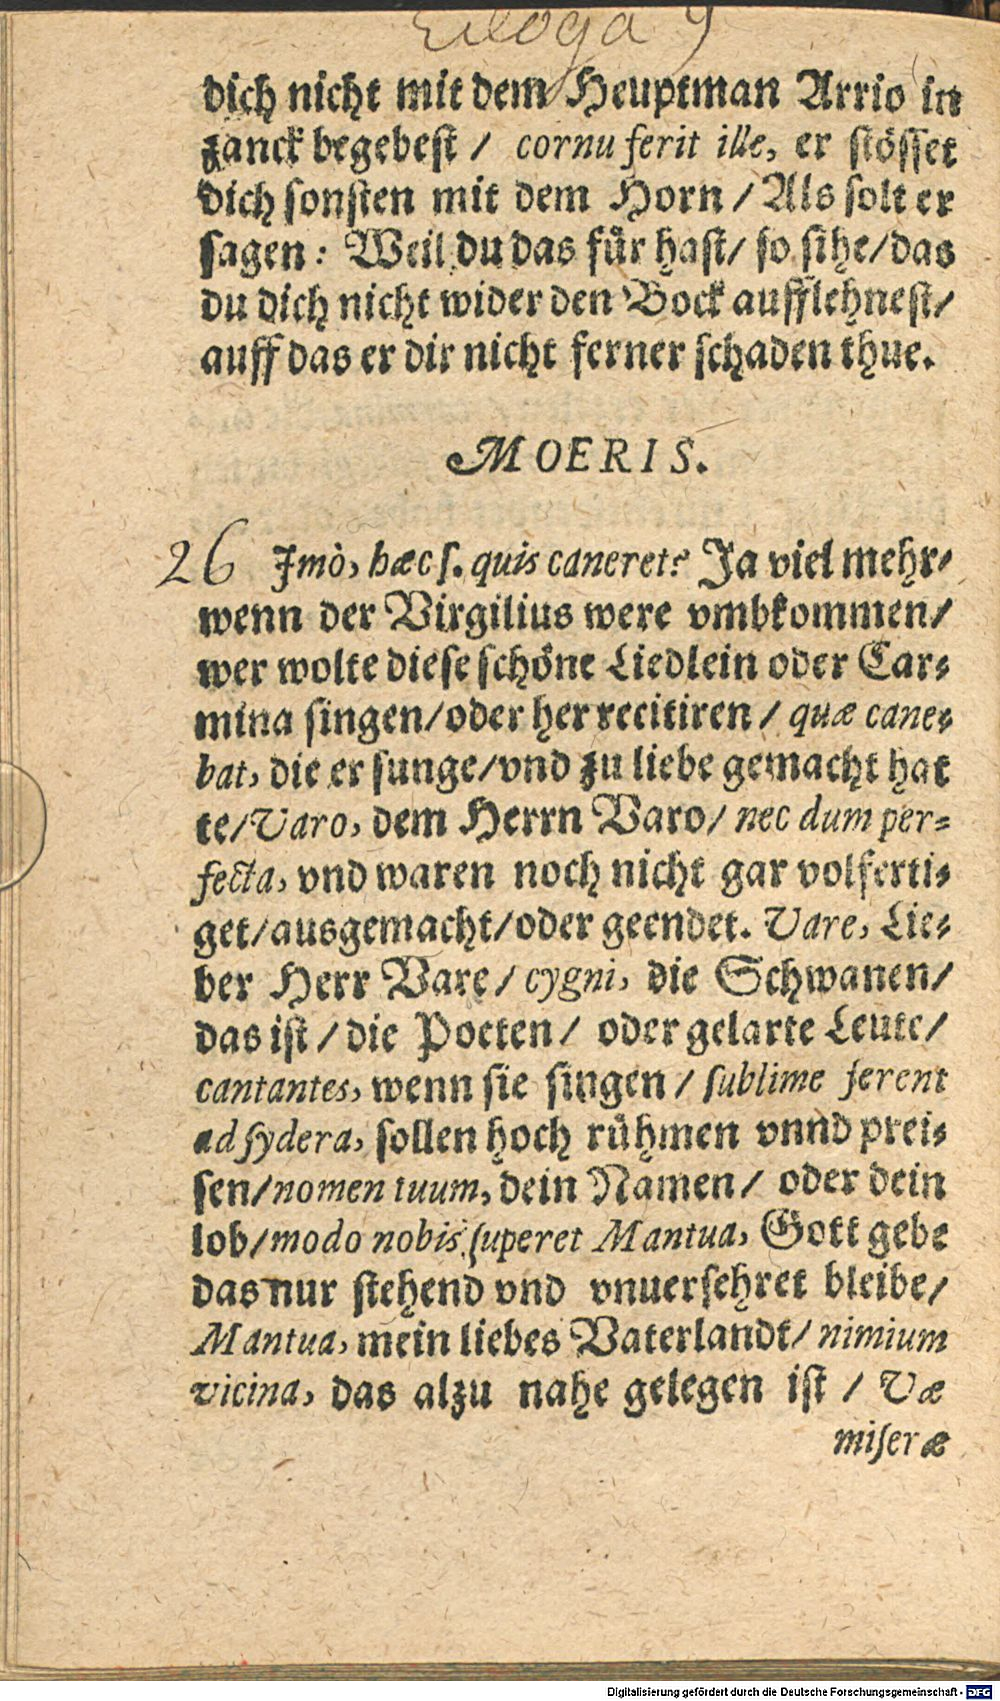 Ecloga 9
dich nicht mit dem Heuptman Arrio in
zanck begebest / cornu ferit ille, er stösset
dich sonsten mit dem Horn / Als solt er
sagen: Weil du das für hast / so sihe / das
du dich nicht wider den Bock aufflehnest /
auff das er dir nicht ferner schaden thue.
MOERIS.
26 Imò, hæc s. quis caneret? Ja viel mehr /
wenn der Virgilius were vmbkommen /
wer wolte diese schöne Liedlein oder Car⸗
mina singen / oder her recitiren / quæ cane⸗
bat, die er sunge / vnd zu liebe gemacht hat
te / Varo, dem Herrn Varo / nec dum per⸗
fecta, vnd waren noch nicht gar volferti⸗
get / ausgemacht / oder geendet. Vare, Lie⸗
ber Herr Vare / cygni, die Schwanen /
das ist / die Poeten / oder gelarte Leute /
cantantes, wenn sie singen / sublime ferent
ad sydera, sollen hoch rühmen vnnd prei⸗
sen / nomen tuum, dein Namen / oder dein
lob / modo nobis superet Mantua, Gott gebe
das nur stehend vnd vnuersehret bleibe /
Mantua, mein liebes Vaterlandt / nimium
vicina, das alzu nahe gelegen ist / Væ
miseræ
Digitalisierung gefördert durch die Deutsche Forschungsgemeinschaft - DFG